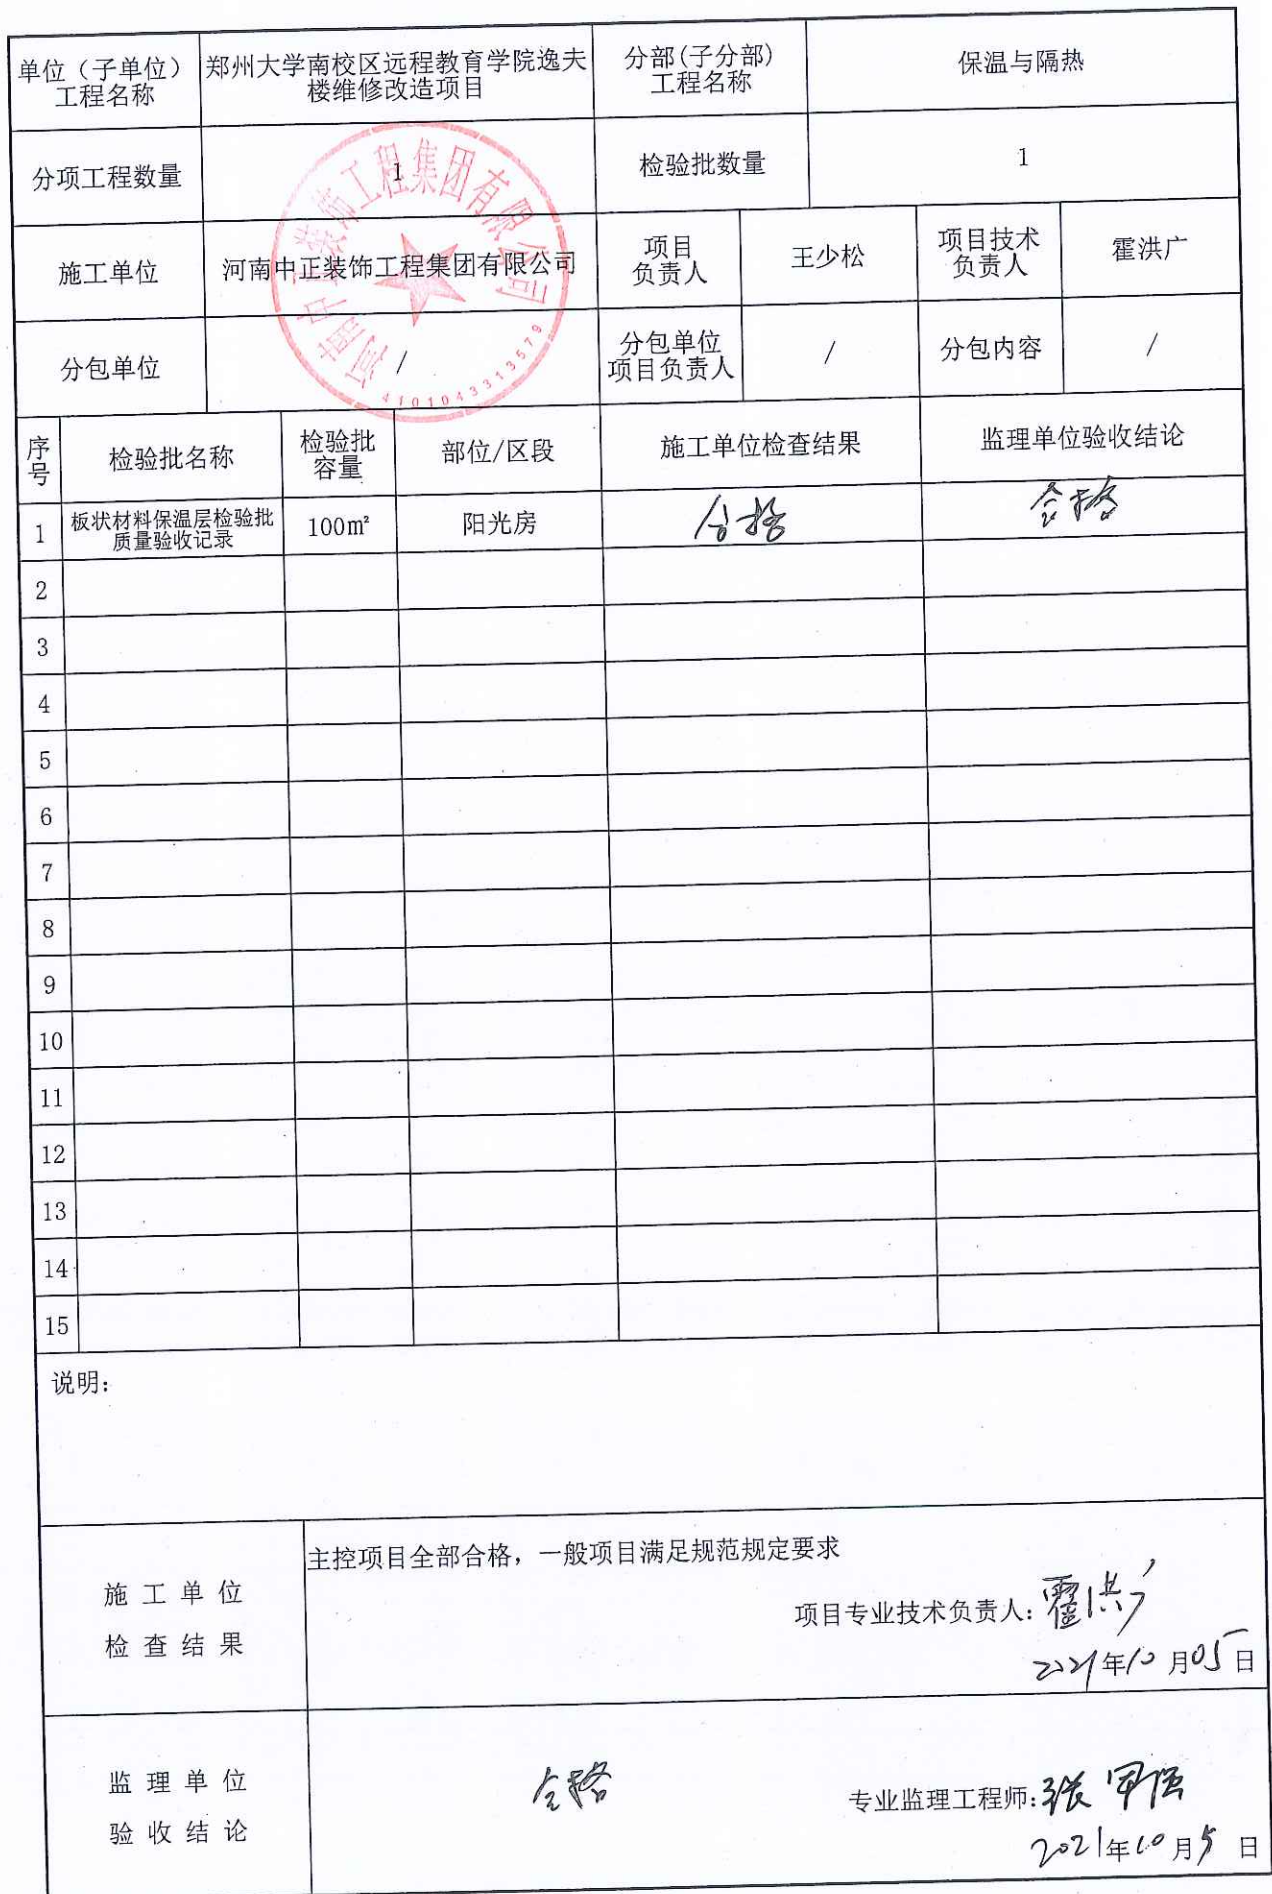 单位（子单位）
工程名称
郑州大学南校区远程教育学院逸夫
楼维修改造项目
分部(子分部)
工程名称
保温与隔热
分项工程数量
1
检验批数量
1
施工单位
河南中正装饰工程集团有限公司
项目
负责人
王少松
项目技术
负责人
霍洪广
分包单位
/
分包单位
项目负责人
/
分包内容
/
河南中正装饰工程集团有限公司
4101043313579
序号
检验批名称
检验批
容量
部位/区段
施工单位检查结果
监理单位验收结论
1
板状材料保温层检验批
质量验收记录
100m²
阳光房
合格
合格
2
3
4
5
6
7
8
9
10
11
12
13
14
15
说明：
施工单位
检查结果
主控项目全部合格，一般项目满足规范规定要求
项目专业技术负责人：霍洪广
2021年10月05日
监理单位
验收结论
合格
专业监理工程师：张军强
2021年10月5日